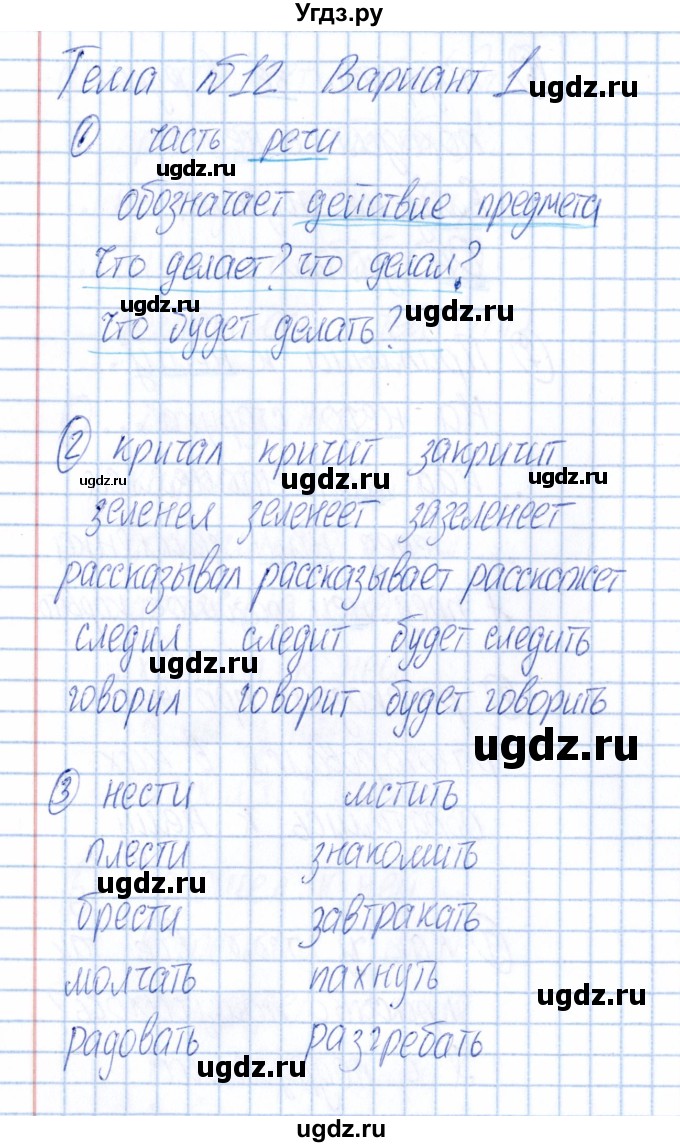 Угдз.ру
Тема №12 Вариант 1
ugdz.ru
① часть речи
ugdz.ru
обозначает действие предмета
Что делает? что делал?
ugdz.ru ugdz.ru
что будет делать?
② кричал кричит закричит
ugdz.ru ugdz.ru ugdz.ru
зеленел зеленеет зазеленеет
рассказывал рассказывает расскажет
следил следит будет следить
ugdz.ru
говорил говорит будет говорить
ugdz.ru
③ нести мстить
плести знакомить
ugdz.ru
брести завтракать
молчать пахнуть
ugdz.ru
радовать разгребать
ugdz.ru
ugdz.ru